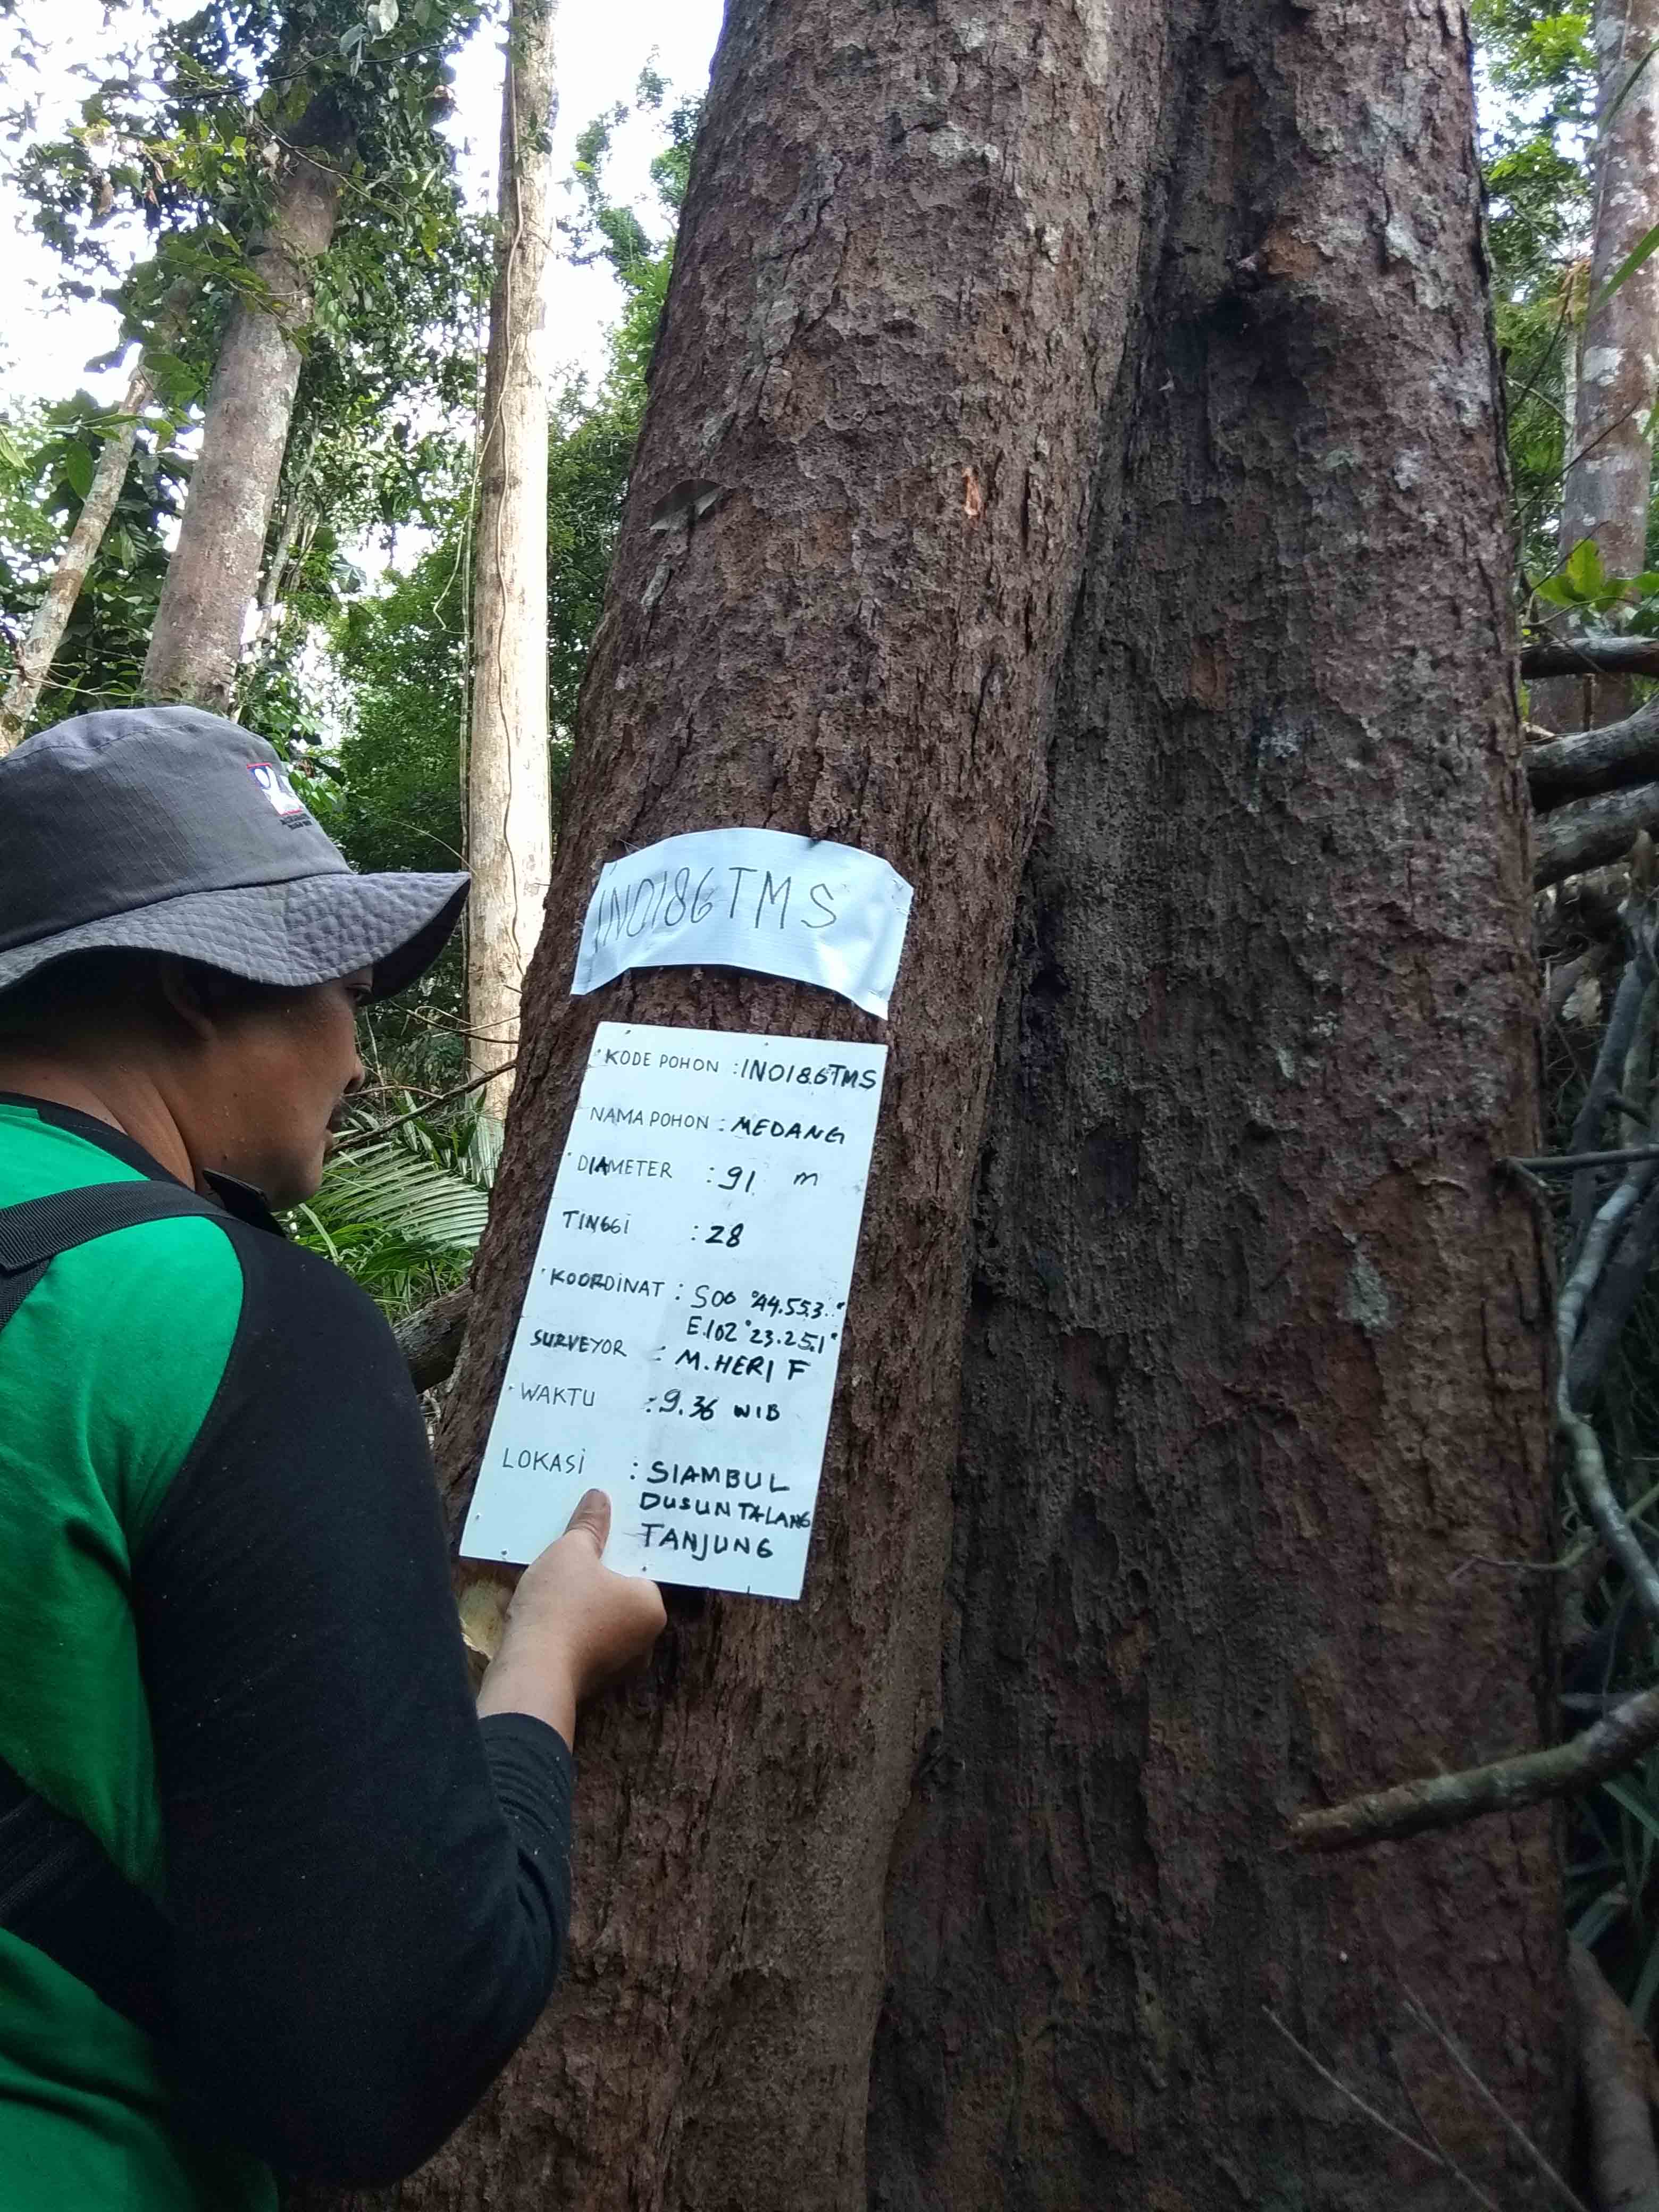 INO186TMS
KODE POHON : INO186TMS
NAMA POHON : MEDANG
DIAMETER : 91 m
TINGGI : 28
KOORDINAT : S00°44.553."
E.102°23.251"
SURVEYOR : M.HERI F
WAKTU : 9.36 WIB
LOKASI : SIAMBUL
DUSUN TALANG
TANJUNG